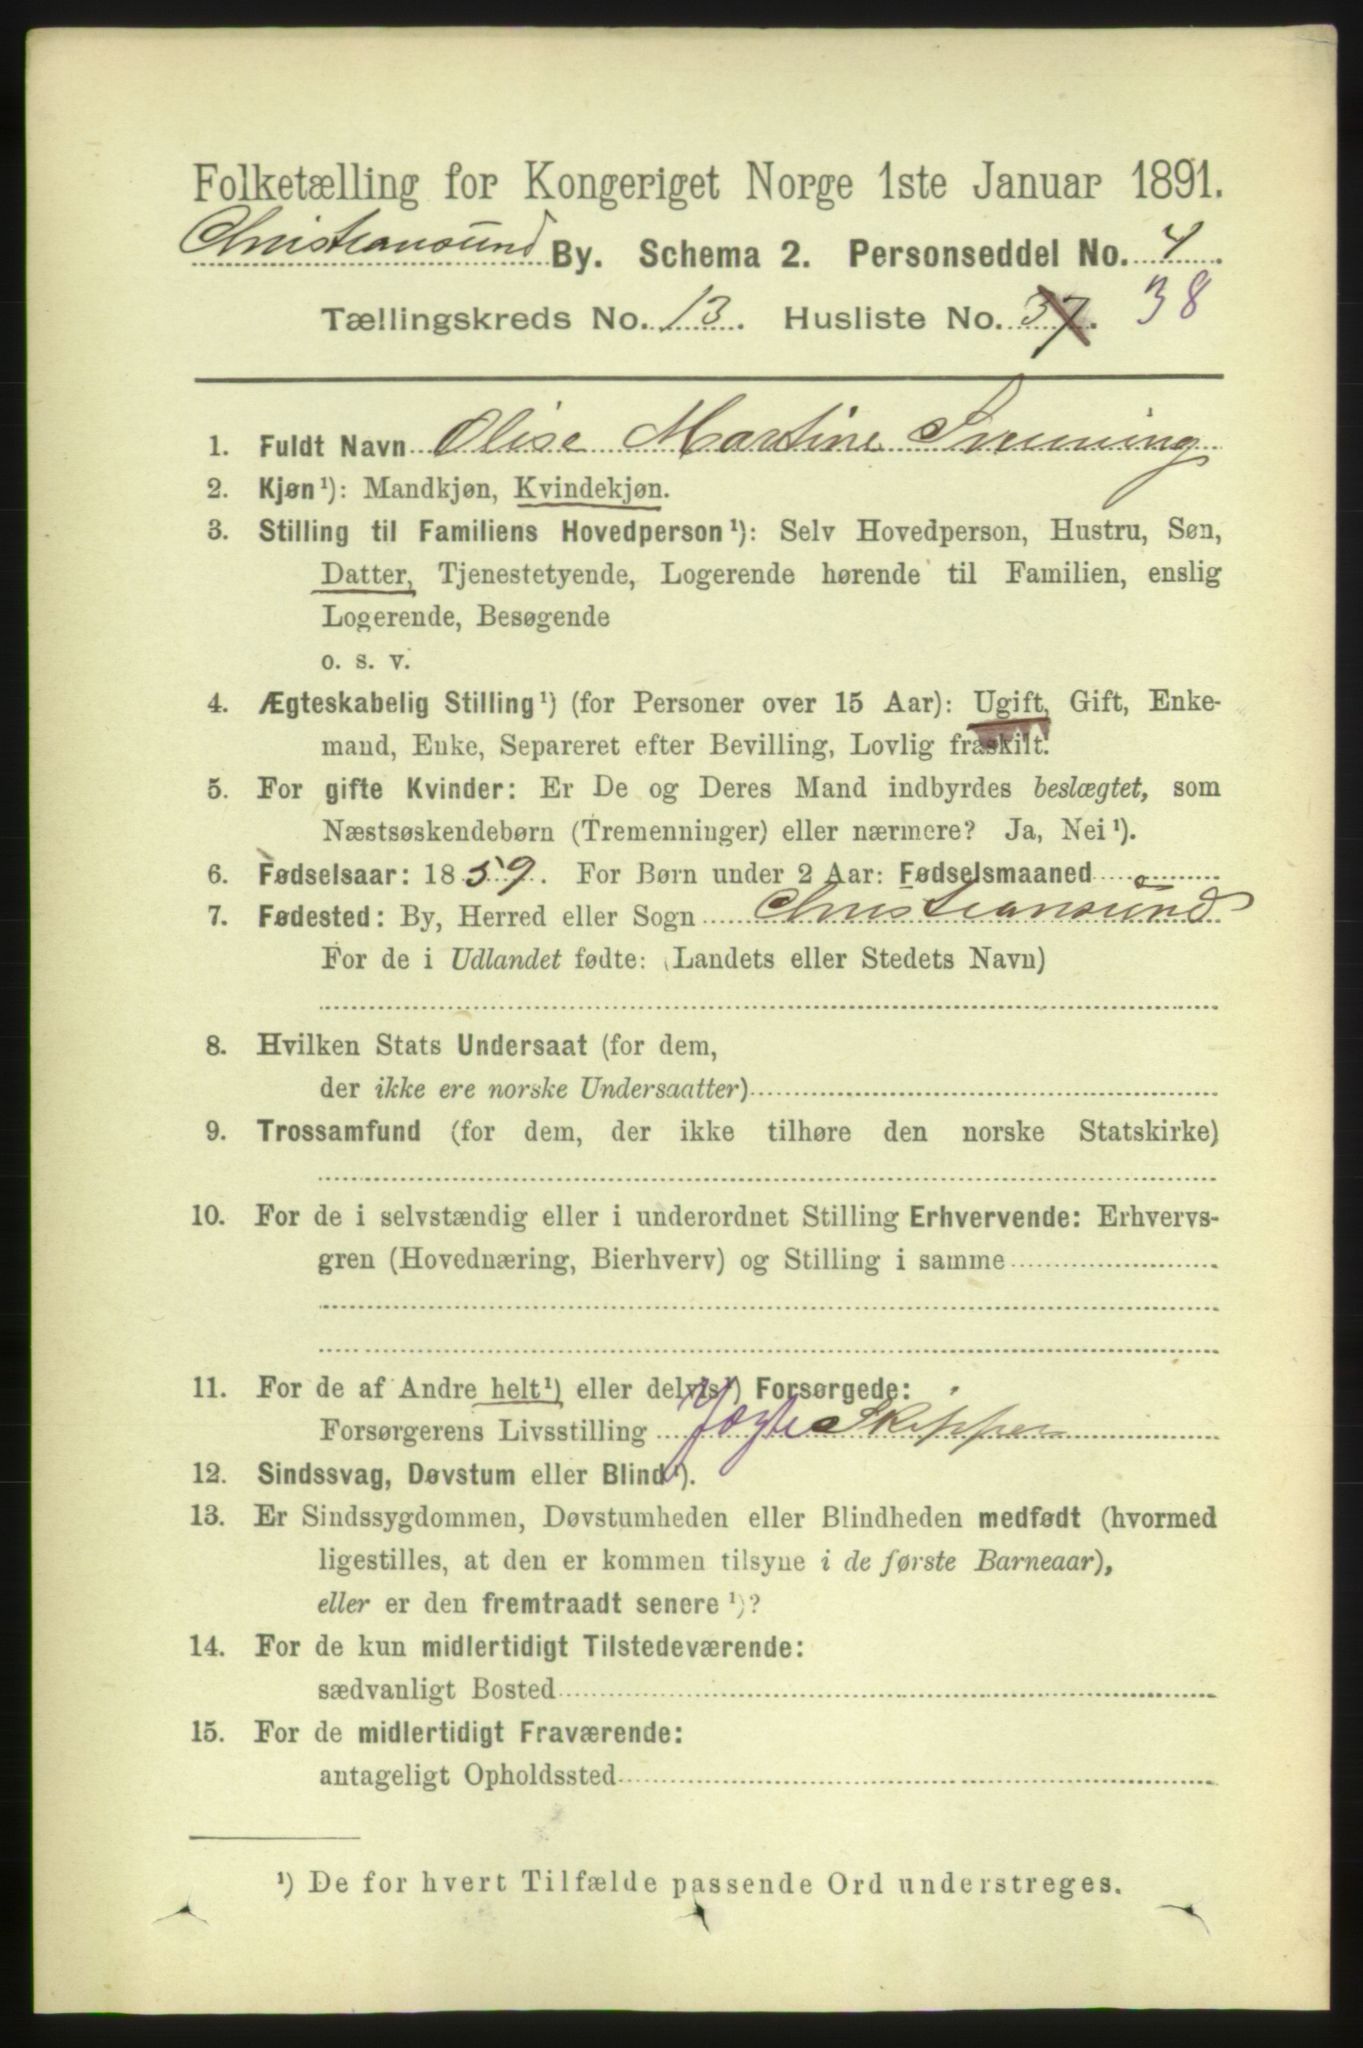 Folketælling for Kongeriget Norge 1ste Januar 1891.
Christiansund By. Schema 2. Personseddel No. 4
Tællingskreds No. 13. Husliste No. 37. 38
1. Fuldt Navn Olise Martine
2. Kjøn¹): Mandkjøn, Kvindekjøn.
3. Stilling til Familiens Hovedperson¹): Selv Hovedperson, Hustru, Søn,
Datter, Tjenestetyende, Logerende hørende til Familien, enslig
Logerende, Besøgende
o. s. v.
4. Ægteskabelig Stilling¹) (for Personer over 15 Aar): Ugift, Gift, Enke-
mand, Enke, Separeret efter Bevilling, Lovlig fraskilt.
5. For gifte Kvinder: Er De og Deres Mand indbyrdes beslægtet, som
Næstsøskendebørn (Tremenninger) eller nærmere? Ja, Nei¹).
6. Fødselsaar: 1859. For Børn under 2 Aar: Fødselsmaaned
7. Fødested: By, Herred eller Sogn Christiansund
For de i Udlandet fødte: (Landets eller Stedets Navn)
8. Hvilken Stats Undersaat (for dem,
der ikke ere norske Undersaatter)
9. Trossamfund (for dem, der ikke tilhøre den norske Statskirke)
10. For de i selvstændig eller i underordnet Stilling Erhvervende: Erhvervs-
gren (Hovednæring, Bierhverv) og Stilling i samme
11. For de af Andre helt¹) eller delvis¹) Forsørgede:
Forsørgerens Livsstilling Jægte Skipper
12. Sindssvag, Døvstum eller Blind¹).
13. Er Sindssygdommen, Døvstumheden eller Blindheden medfødt (hvormed
ligestilles, at den er kommen tilsyne i de første Barneaar),
eller er den fremtraadt senere¹)?
14. For de kun midlertidigt Tilstedeværende:
sædvanligt Bosted
15. For de midlertidigt Fraværende:
antageligt Opholdssted
¹) De for hvert Tilfælde passende Ord understreges.